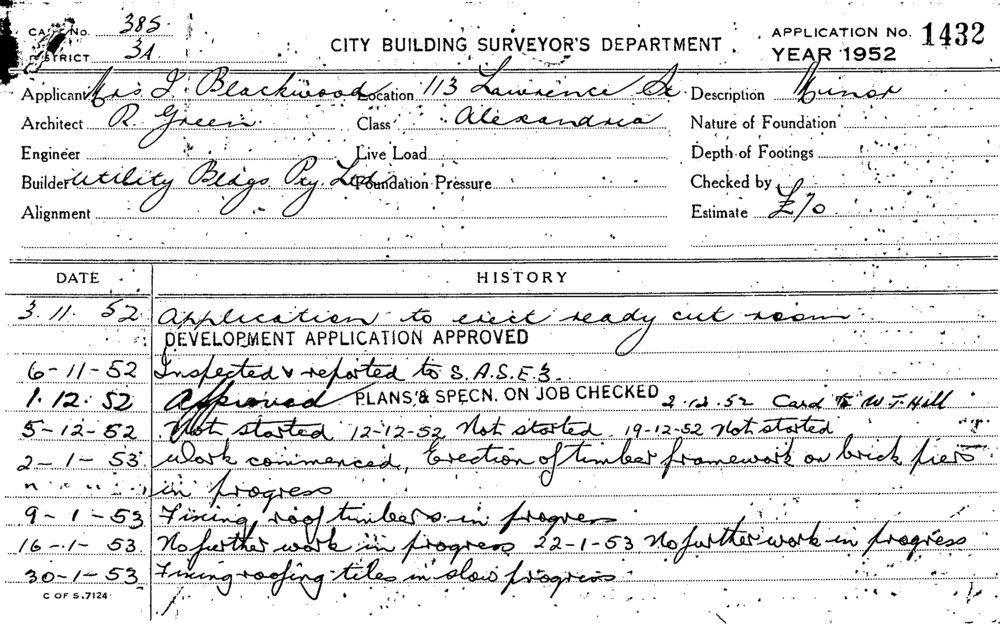 CARD No. 385
DISTRICT 3A
CITY BUILDING SURVEYOR'S DEPARTMENT
APPLICATION No. 1432
YEAR 1952
Applicant Mrs. I. Blackwood Location 113 Lawrence St. Description Minor
Architect R. Green Class Alexandria Nature of Foundation
Engineer Live Load Depth of Footings
Builder Utility Bldgs Pty. Ltd. Foundation Pressure Checked by
Alignment Estimate £70
DATE HISTORY
3. 11. 52 Application to erect ready cut room
DEVELOPMENT APPLICATION APPROVED
6-11-52 Inspected & reported to S.A.S.E3.
1. 12. 52 Approved PLANS, & SPECN. ON JOB CHECKED 2.12.52 Card to W.T. Hill
5-12-52 Not started 12-12-52 Not started 19-12-52 Not started
2-1-53 Work commenced, Erection of timber framework on brick piers
" " " in progress
9-1-53 Fixing roof timbers in progress
16-1-53 No further work in progress 22-1-53 No further work in progress
30-1-53 Fixing roofing tiles in slow progress
C OF S.7124